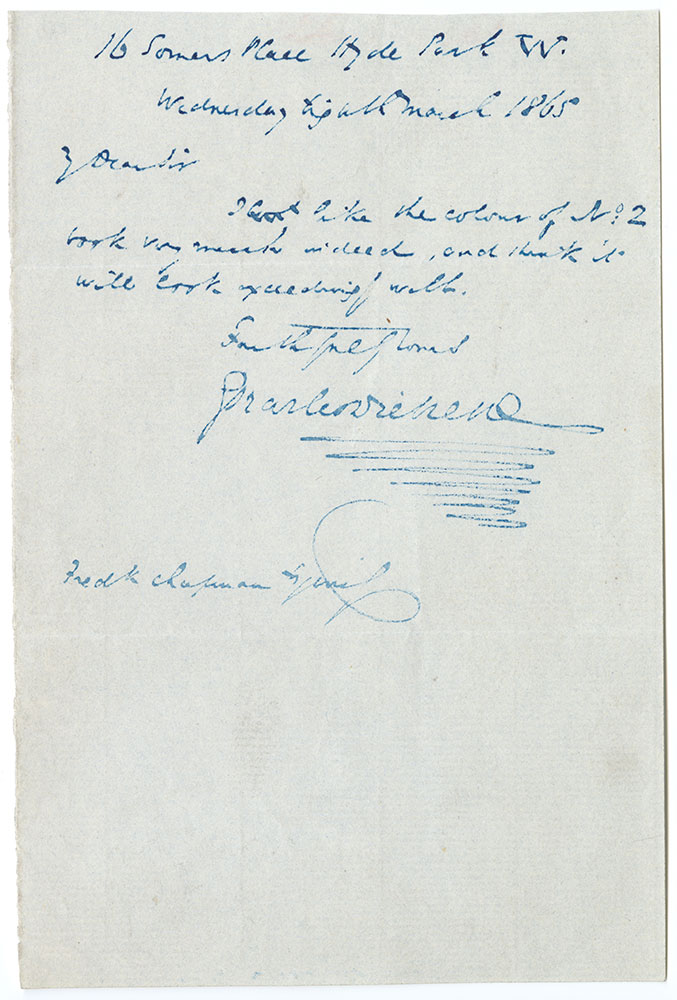 16 Somers Place Hyde Park W.
Wednesday Eighth March 1865
My Dear Sir
I like the colour of No. 2
book very much indeed, and think it
will look exceedingly well.
Faithfully Yours
Charles Dickens
Fredk Chapman Esquire